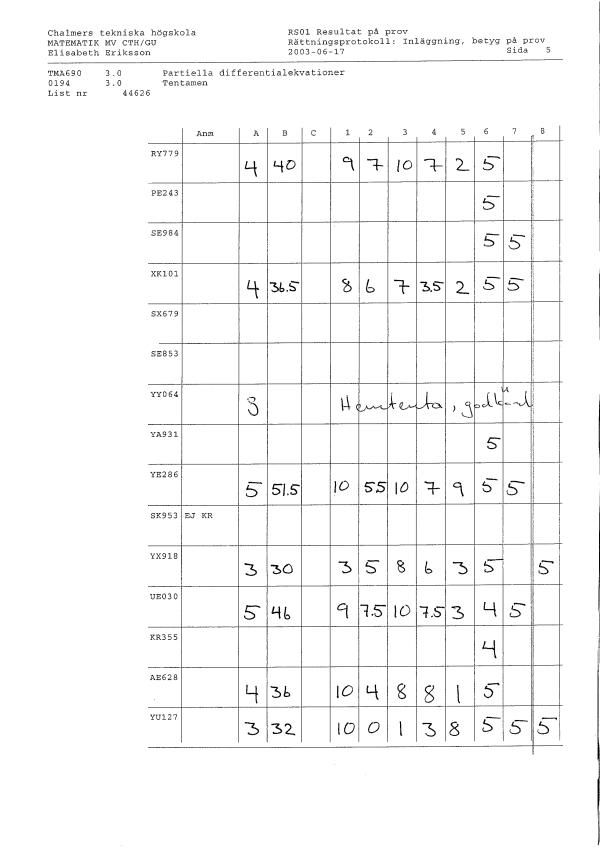 Chalmers tekniska högskola RS01 Resultat på prov
MATEMATIK MV CTH/GU Rättningsprotokoll: Inläggning, betyg på prov
Elisabeth Eriksson 2003-06-17 Sida 5
TMA690 3.0 Partiella differentialekvationer
0194 3.0 Tentamen
List nr 44626
Anm A B C 1 2 3 4 5 6 7 8
RY779 4 40 9 7 10 7 2 5
PE243 5
SE984 5 5
XK101 4 36.5 8 6 7 3.5 2 5 5
SX679
SE853
YY064 3 Hemtenta, godkänd
YA931 5
YE286 5 51.5 10 5.5 10 7 9 5 5
SK953 EJ KR
YX918 3 30 3 5 8 6 3 5 5
UE030 5 46 9 7.5 10 7.5 3 4 5
KR355 4
AE628 4 36 10 4 8 8 1 5
YU127 3 32 10 0 1 3 8 5 5 5